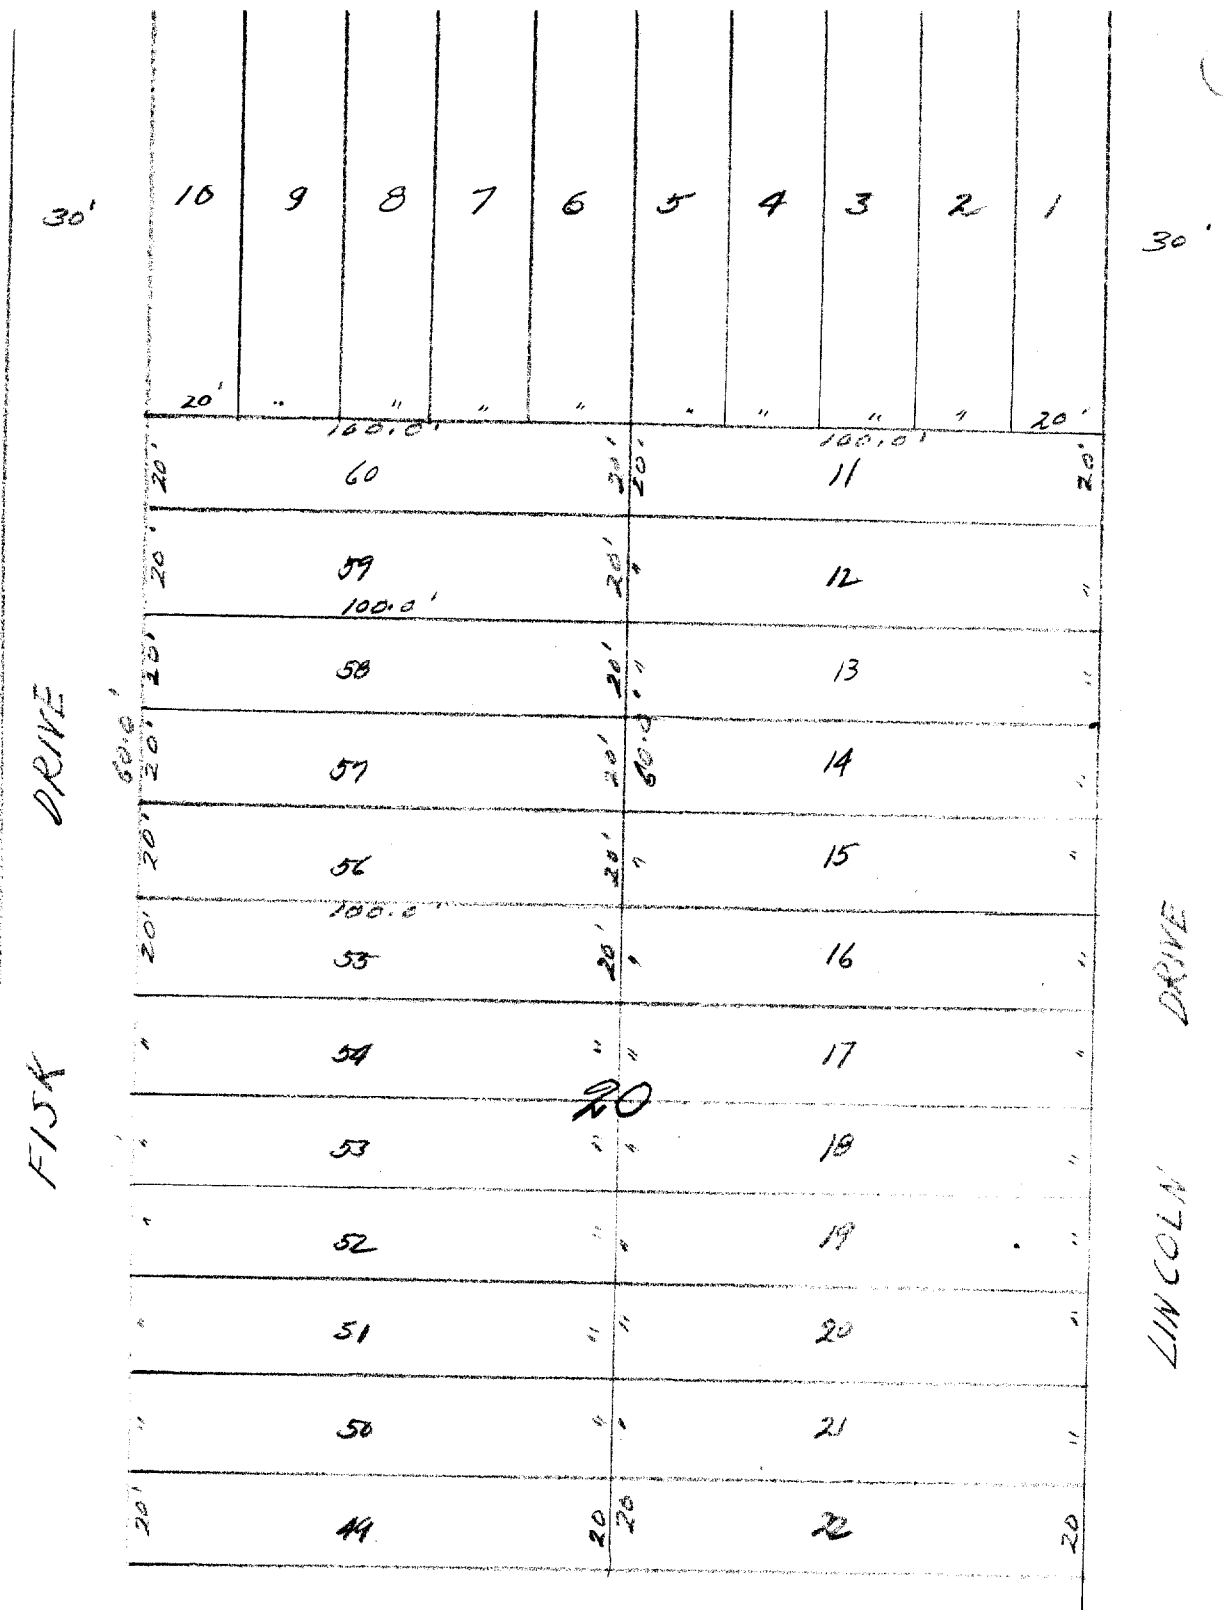 30' 10 9 8 7 6 5 4 3 2 1 30'
20' " " " " " " " " 20'
100.0' 100.0'
20' 60 20' 20' 11 20'
20' 59 20' " 12 "
100.0'
20' 58 20' " 13 "
60.0' 20' 57 20' 60.0 14 "
20' 56 20' " 15 "
100.0'
20' 55 20' " 16 "
" 54 " " 17 "
20
" 53 " " 18 "
" 52 " " 19 "
" 51 " " 20 "
" 50 " " 21 "
20' 49 20 20 22 20
FISK DRIVE
LINCOLN DRIVE